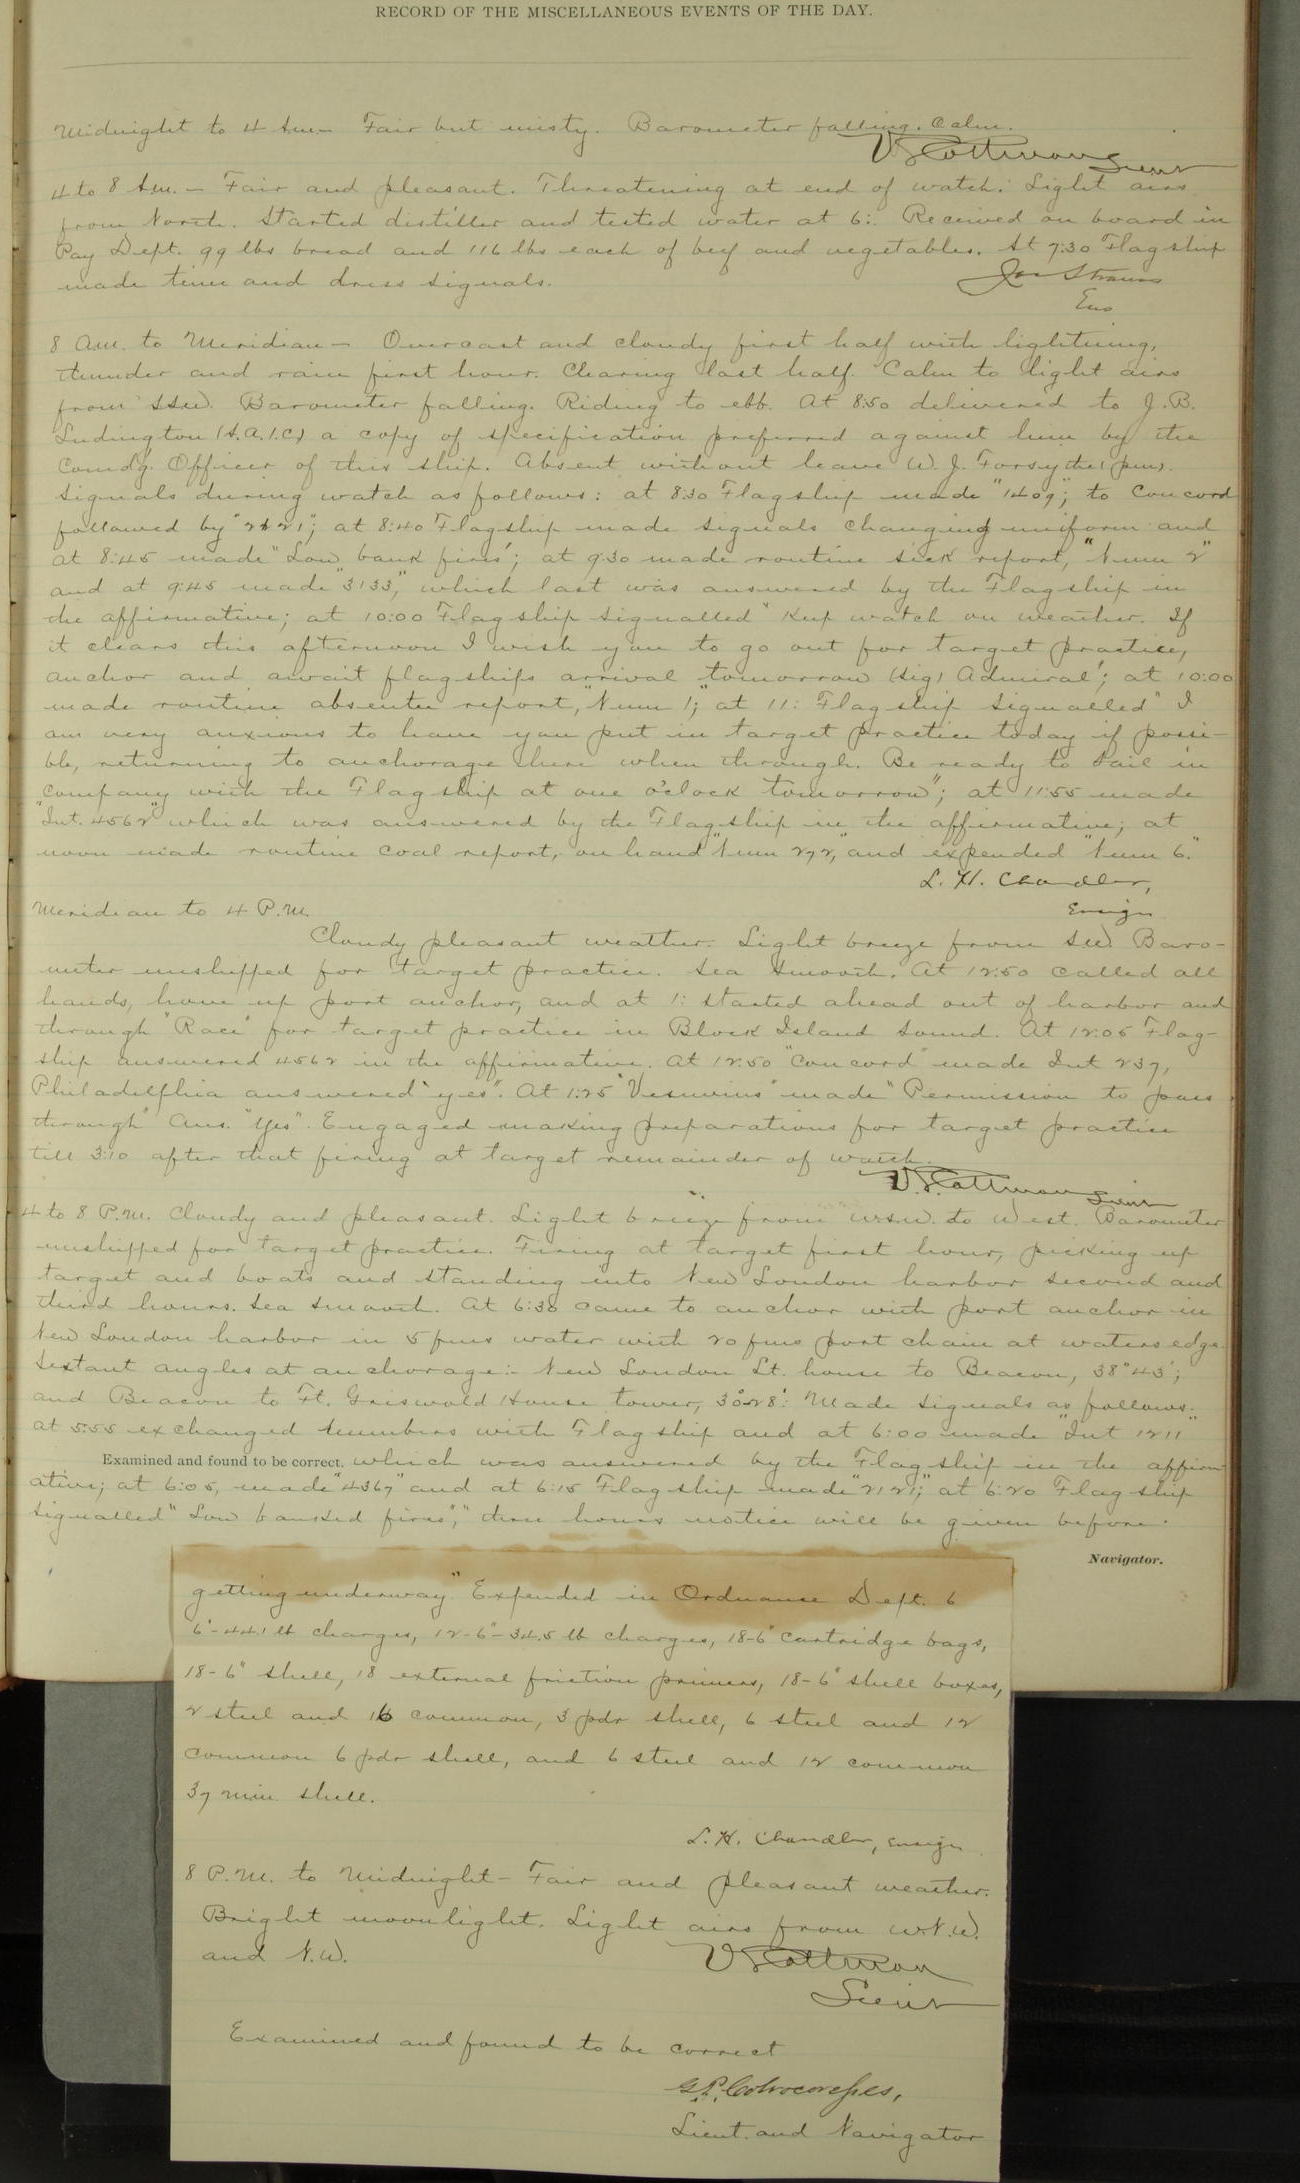 RECORD OF THE MISCELLANEOUS EVENTS OF THE DAY.
Midnight to 4 Am— Fair but misty. Barometer falling. Calm.
V S Cottman Lieut
4 to 8 Am. — Fair and pleasant. Threatening at end of watch. Light airs
from North. Started distiller and tested water at 6:. Received on board in
Pay Dept. 99 lbs bread and 116 lbs each of beef and vegetables. At 7:30 Flagship
made time and dress signals.
Jos Strauss
Ens
8 Am. to Meridian — Overcast and cloudy first half with lightning,
thunder and rain first hour. Clearing last half. Calm to light airs
from SSW. Barometer falling. Riding to ebb. At 8:50 delivered to J. B.
Ludington (S.A.1.C.) a copy of specification preferred against him by the
Comd'g. Officer of this ship. Absent without leave W. J. Forsythe (pm).
Signals during watch as follows: at 8:30 Flagship made "1409", to Concord
followed by "2121"; at 8:40 Flagship made signals changing uniform and
at 8:45 made "Low bank fires"; at 9:30 made routine sick report, "Num 2"
and at 9:45 made "3133," which last was answered by the Flagship in
the affirmative; at 10:00 Flagship signalled "Keep watch on weather. If
it clears this afternoon I wish you to go out for target practice,
anchor and await flagships arrival tomorrow (Sig) Admiral"; at 10:00
made routine absentee report, "Num 1;" at 11: Flagship signalled "I
am very anxious to have you put in target practice today if possi-
ble, returning to anchorage there when through. Be ready to sail in
company with the Flagship at one o'clock tomorrow"; at 11:55 made
"Int. 4562" which was answered by the Flagship in the affirmative; at
noon made routine coal report, on hand "Num 272," and expended "Num 6."
L. H. Chandler,
Ensign
Meridian to 4 P.M.
Cloudy pleasant weather. Light breeze from SW. Baro-
meter unshipped for target practice. Sea smooth. At 12:50 called all
hands, hove up port anchor, and at 1: started ahead out of harbor and
through "Race" for target practice in Block Island Sound. At 12:05 Flag-
ship answered 4562 in the affirmative. At 12:50 "Concord" made Int 237,
Philadelphia answered "yes". At 1:25 "Vesuvius" made "Permission to pass
through" Ans. "Yes". Engaged making preparations for target practice
till 3:10 after that firing at target remainder of watch.
V. S. Cottman Lieut
4 to 8 P.M. Cloudy and pleasant. Light breeze from WSW. to West. Barometer
unshipped for target practice. Firing at target first hour, picking up
target and boats and standing into New London harbor second and
third hours. Sea smooth. At 6:38 came to anchor with port anchor in
New London harbor in 5 fms water with 20 fms port chain at waters edge.
Sextant angles at anchorage:- New London Lt. house to Beacon, 38°43';
and Beacon to Ft. Griswold House tower, 30°28'. Made signals as follows:
at 5:55 exchanged numbers with Flagship and at 6:00 made "Int 1211"
Examined and found to be correct. which was answered by the Flagship in the affirm-
ative; at 6:05, made "4367" and at 6:15 Flagship made "2121;" at 6:20 Flagship
signalled "Low banked fires," "three hours notice will be given before
Navigator.
getting underway" Expended in Ordnance Dept. 6
6"-44.1 lb charges, 12-6"-34.5 lb charges, 18-6" cartridge bags,
18-6" shell, 18 external friction primers, 18-6" shell boxes,
2 steel and 16 common, 3 pdr shell, 6 steel and 12
common 6 pdr shell, and 6 steel and 12 common
37 mm shell.
L. H. Chandler, Ensign
8 P.M. to Midnight — Fair and pleasant weather.
Bright moonlight. Light airs from W.N.W.
and N.W.
V S Cottman
Lieut
Examined and found to be correct
G. P. Colvocoresses,
Lieut. and Navigator